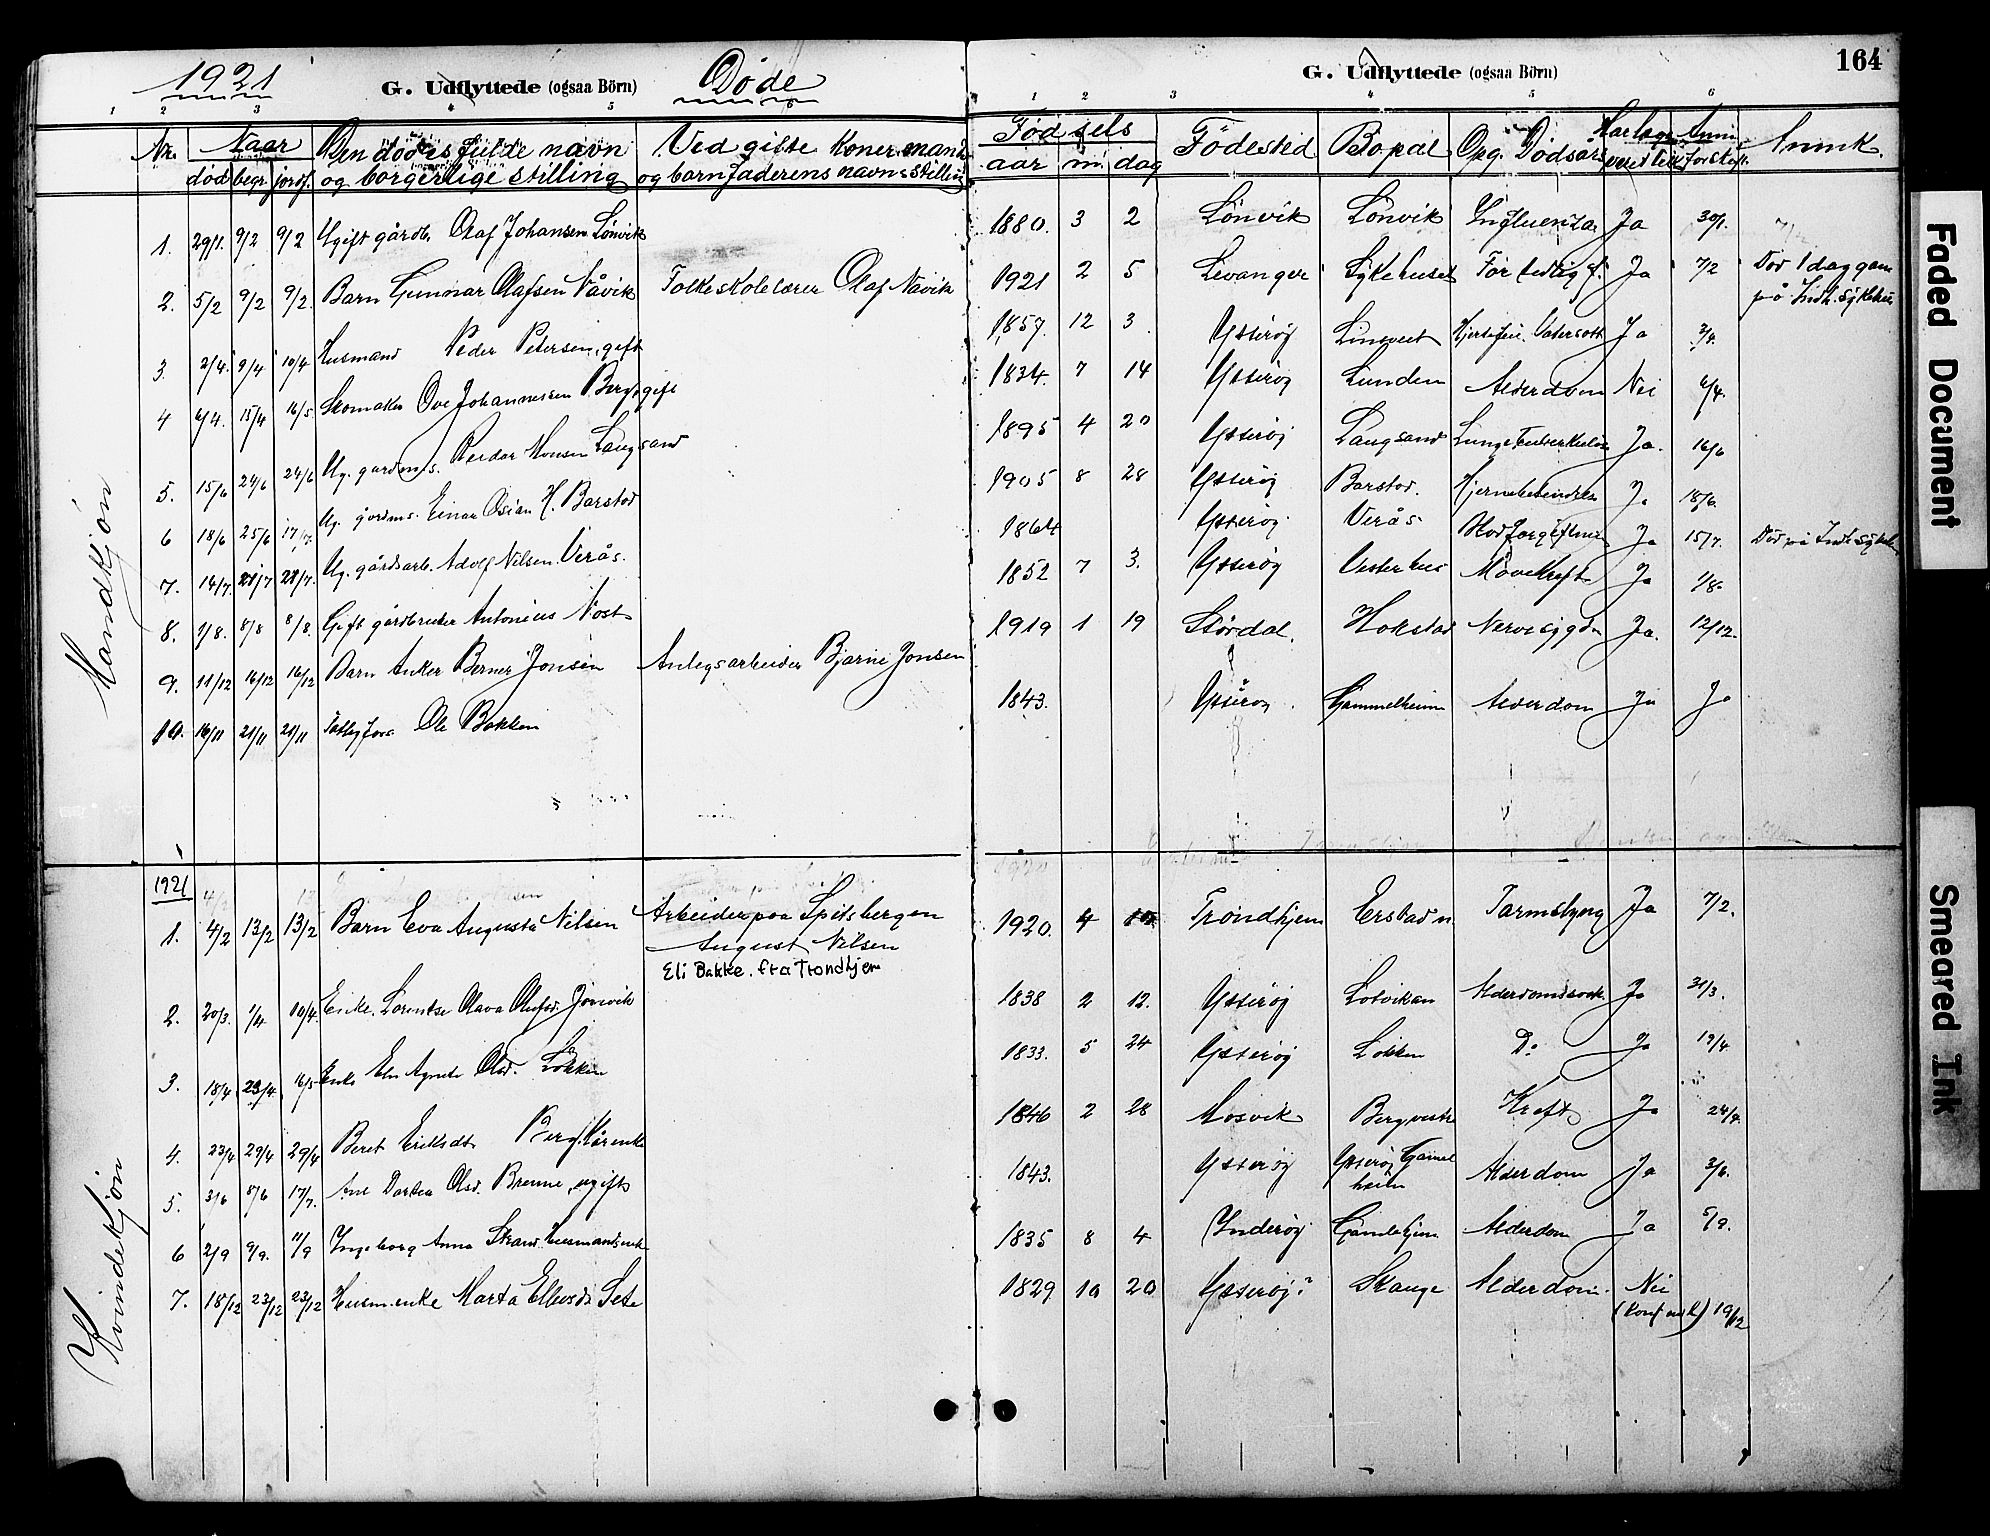 1921
G. Udflyttede (ogsaa Börn)
Døde
1 2 3 4 5 6
Nr. Naar Den dødes fulde navn Ved gifte koner mand
død begr. jordf. og borgerlige stilling og barn faderens navn & stilling
Mandkjøn
1. 29/1. 9/2 9/2 Ugift gårdb. Olaf Johansen Lönvik
2. 5/2 9/2 9/2. Barn Gunnar Olafsen Våvik Folkeskolelærer Olaf Våvik
3. 2/4. 9/4 10/4 Husmand Peder Petersen, gift
4 6/4. 15/4 16/5 Skomaker Ove Johannessen Berg, gift
5. 15/6 24/6 24/6 Ug. gardms. Peder Monsen Laugsand
6 18/6 25/6 17/7. Ug. gardms. Einar Osian H. Barstad
7. 14/7. 21/7 21/7. Ug. gårdsarb. Adolf Nilsen Verås.
8. 1/8. 8/8 8/8. Gift gårdbruker Antonius Nost
9. 11/12 16/12 16/12 Barn Anker Berner Jonsen Anlegsarbeider Bjarne Jonsen
10. 16/11 21/11 21/11 Ole Bakken
Kvindekjøn
1921
1. 4/2 13/2 13/2 Barn Eva Augusta Nilsen Arbeider paa Spitsbergen
August Nilsen
Eli Bakke. fra Trondhjem
2. 20/3. 1/4 10/4. Enke. Lorentse Olava Olufsd. Jönvik
3. 18/4 23/4. 16/5 Enke Eln Agneta Olsd. Løkken
4. 23/4 29/4 29/4 Beret Eriksdt. Berg, kårenke
5. 3/6 8/6 17/7. Ane Dortea Olsd. Brenne, ugift
6 2/9 9/9. 11/9 Ingeborg Anna Strand husmandsenke
7. 18/12 23/12 23/12 Husm.enke Marta Ellevsd. Sete
G. Udflyttede (ogsaa Börn)
164
1 2 3 4 5 6
Fødsels Födested Bopæl Opg. Dödsårs Anm. Anmk.
aar m. dag
1880. 3 2 Lönvik Lönvik Influenza Ja 30/1.
1921 2 5 Levanger Sykehuset For tedlig f. Ja 7/2 Død 1 dag gam
på Indh. sykehus
1857. 12 3. Ytterøy Lineveit Hjertefeil. Vatersott Ja 3/4.
1834. 7 14 Ytterøy Lunden Alderdom Nei 6/4.
1895 4 20 Ytterøy Laugsand Lungetuberkulose Ja. 16/6
1905 8 28 Ytterøy Barstad. Hjernebetendelse Ja 18/6.
1864 Ytterøy. Verås Blodforgiftning Ja 15/7. Død på Indh. sykehus
1852 7 3. Ytterøy Vesterhus Mavekreft Ja 1/8.
1919 1 19 Stördal. Hokstad Nervesygdom Ja. 12/12.
1843. Ytterøy Gammelheim Alderdom Ja Ja
1920. 4 Trondhjem Erstad n. Tarmslyng Ja 7/2.
1838 2 12. Ytterøy Lotvikan Alderdomssvak. Ja 31/3.
1833. 5 24 Ytterøy Løkken Do Ja 19/4.
1846 2 28 Mosvik Berg vestre Kreft Ja 24/4.
1843. Ytterøy Ytterøy Gamel
heim Alderdom Ja 3/6.
1835 8 4 Inderøy. Gamlehjem Alderdom Ja 5/9.
1829 10 20 Ytterøy? Skange Alderdom. Nei
(konf. m. k.) 19/12
Faded Document
Smeared Ink